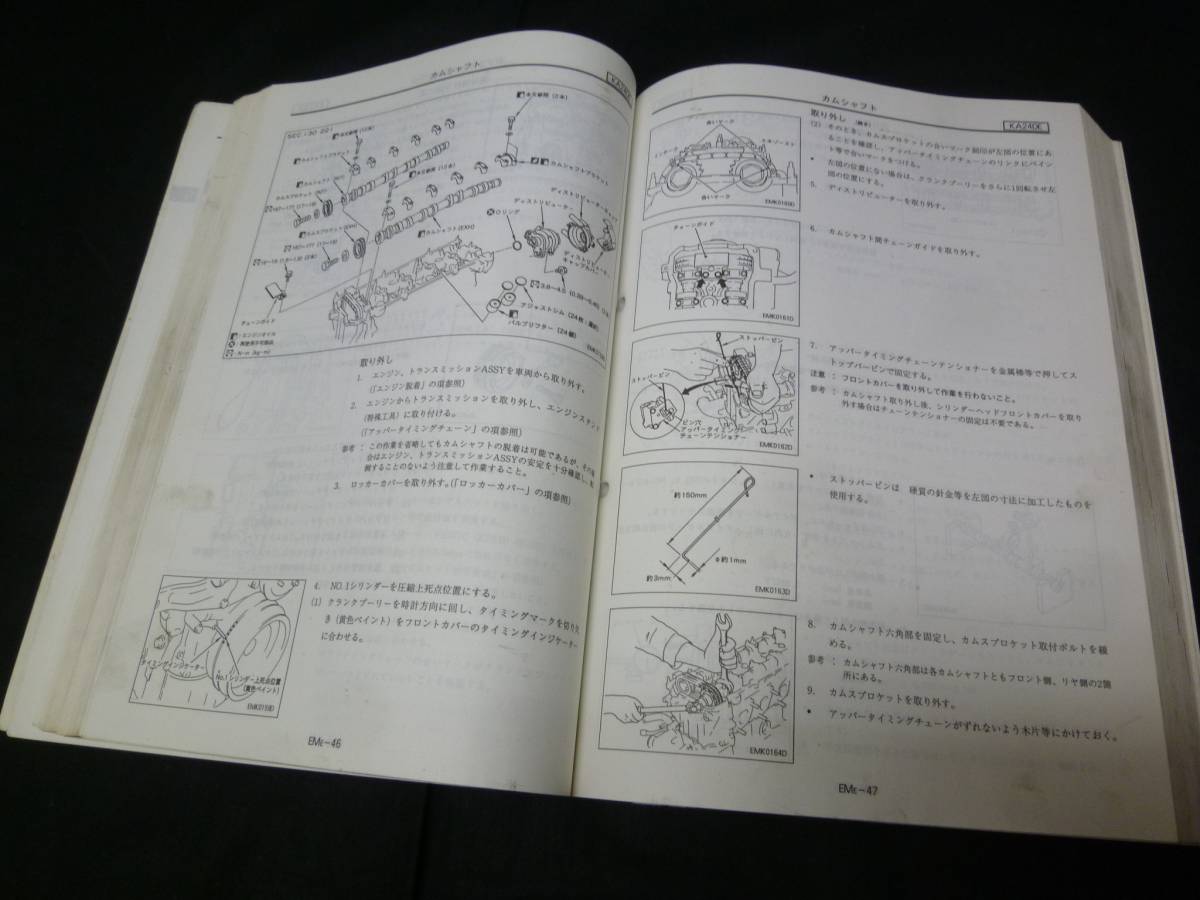 カムシャフト
SEC.130・221
カムシャフトブラケット
カムシャフトブラケット
カムシャフト(EXH)
ディストリビューター
ディストリビューターキャップ
Oリング
アジャストシム(24枚:選択)
バルブリフター(24個)
チェーンガイド
:エンジンオイル
:再使用不可部品
:N・m(kg-m)
取り外し
1. エンジン、トランスミッションASSYを車両から取り外す。
(「エンジン脱着」の項参照)
2. エンジンからトランスミッションを取り外し、エンジンスタンド
(特殊工具)に取り付ける。
(「アッパータイミングチェーン」の項参照)
参考 : この作業を省略してもカムシャフトの脱着は可能であるが、その場
合はエンジン、トランスミッションASSYの安定を十分確認し、転
倒することのないよう注意して作業すること。
3. ロッカーカバーを取り外す。(「ロッカーカバー」の項参照)
4. NO.1シリンダーを圧縮上死点位置にする。
(1) クランクプーリーを時計方向に回し、タイミングマークを切り欠
き(黄色ペイント)をフロントカバーのタイミングインジケーター
に合わせる。
タイミングインジケーター
No.1シリンダー上死点位置
(黄色ペイント)
EMK0159D
EME-46
カムシャフト
KA24DE
取り外し (続き)
(2) そのとき、カムスプロケットの合いマーク刻印が左図の位置にあ
ることを確認し、アッパータイミングチェーンのリンクにペイン
ト等で合いマークをつける。
• 左図の位置にない場合は、クランクプーリーをさらに1回転させ左
図の位置にする。
5. ディストリビューターを取り外す。
合いマーク
合いマーク
EMK0160D
6. カムシャフト間チェーンガイドを取り外す。
チェーンガイド
EMK0161D
7. アッパータイミングチェーンテンショナーを金属棒等で押してス
トッパーピンで固定する。
注意 : フロントカバーを取り外して作業を行わないこと。
参考 : カムシャフト取り外し後、シリンダーヘッドフロントカバーを取り
外す場合はチェーンテンショナーの固定は不要である。
ストッパーピン
ストッパーピン
ピン穴
アッパータイミング
チェーンテンショナー
EMK0162D
• ストッパーピンは 硬質の針金等を左図の寸法に加工したものを
使用する。
約150mm
φ約1mm
約3mm
EMK0163D
8. カムシャフト六角部を固定し、カムスプロケット取付ボルトを緩
める。
参考 : カムシャフト六角部は各カムシャフトともフロント側、リヤ側の2箇
所にある。
9. カムスプロケットを取り外す。
• アッパータイミングチェーンがずれないよう木片等にかけておく。
EMK0164D
EME-47